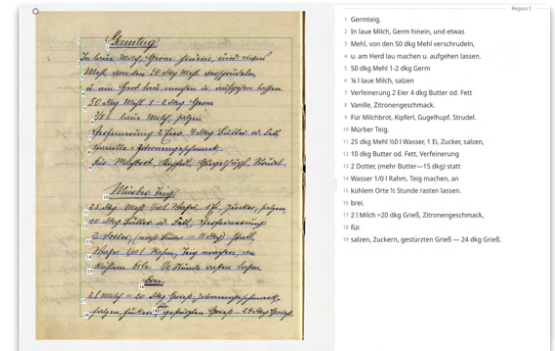 Region 1
1 Germteig.
2 In laue Milch, Germ hinein, und etwas
3 Mehl, von den 50 dkg Mehl verschrudeln,
4 u. am Herd lau machen u. aufgehen lassen.
5 50 dkg Mehl 1-2 dkg Germ
6 ⅛ l laue Milch, salzen
7 Verfeinerung 2 Eier 4 dkg Butter od. Fett
8 Vanille, Zitronengeschmack.
9 Für Milchbrot, Kipferl, Gugelhupf, Strudel.
10 Mürber Teig.
11 25 dkg Mehl ⅒ l Wasser, 1 Ei, Zucker, salzen,
12 10 dkg Butter od. Fett, Verfeinerung
13 2 Dotter, (mehr Butter—15 dkg) statt
14 Wasser 1/0 l Rahm, Teig machen, an
15 kühlem Orte ½ Stunde rasten lassen.
16 brei.
17 2 l Milch =20 dkg Grieß, Zitronengeschmack,
18 für.
19 salzen, Zuckern, gestürzten Grieß — 24 dkg Grieß.